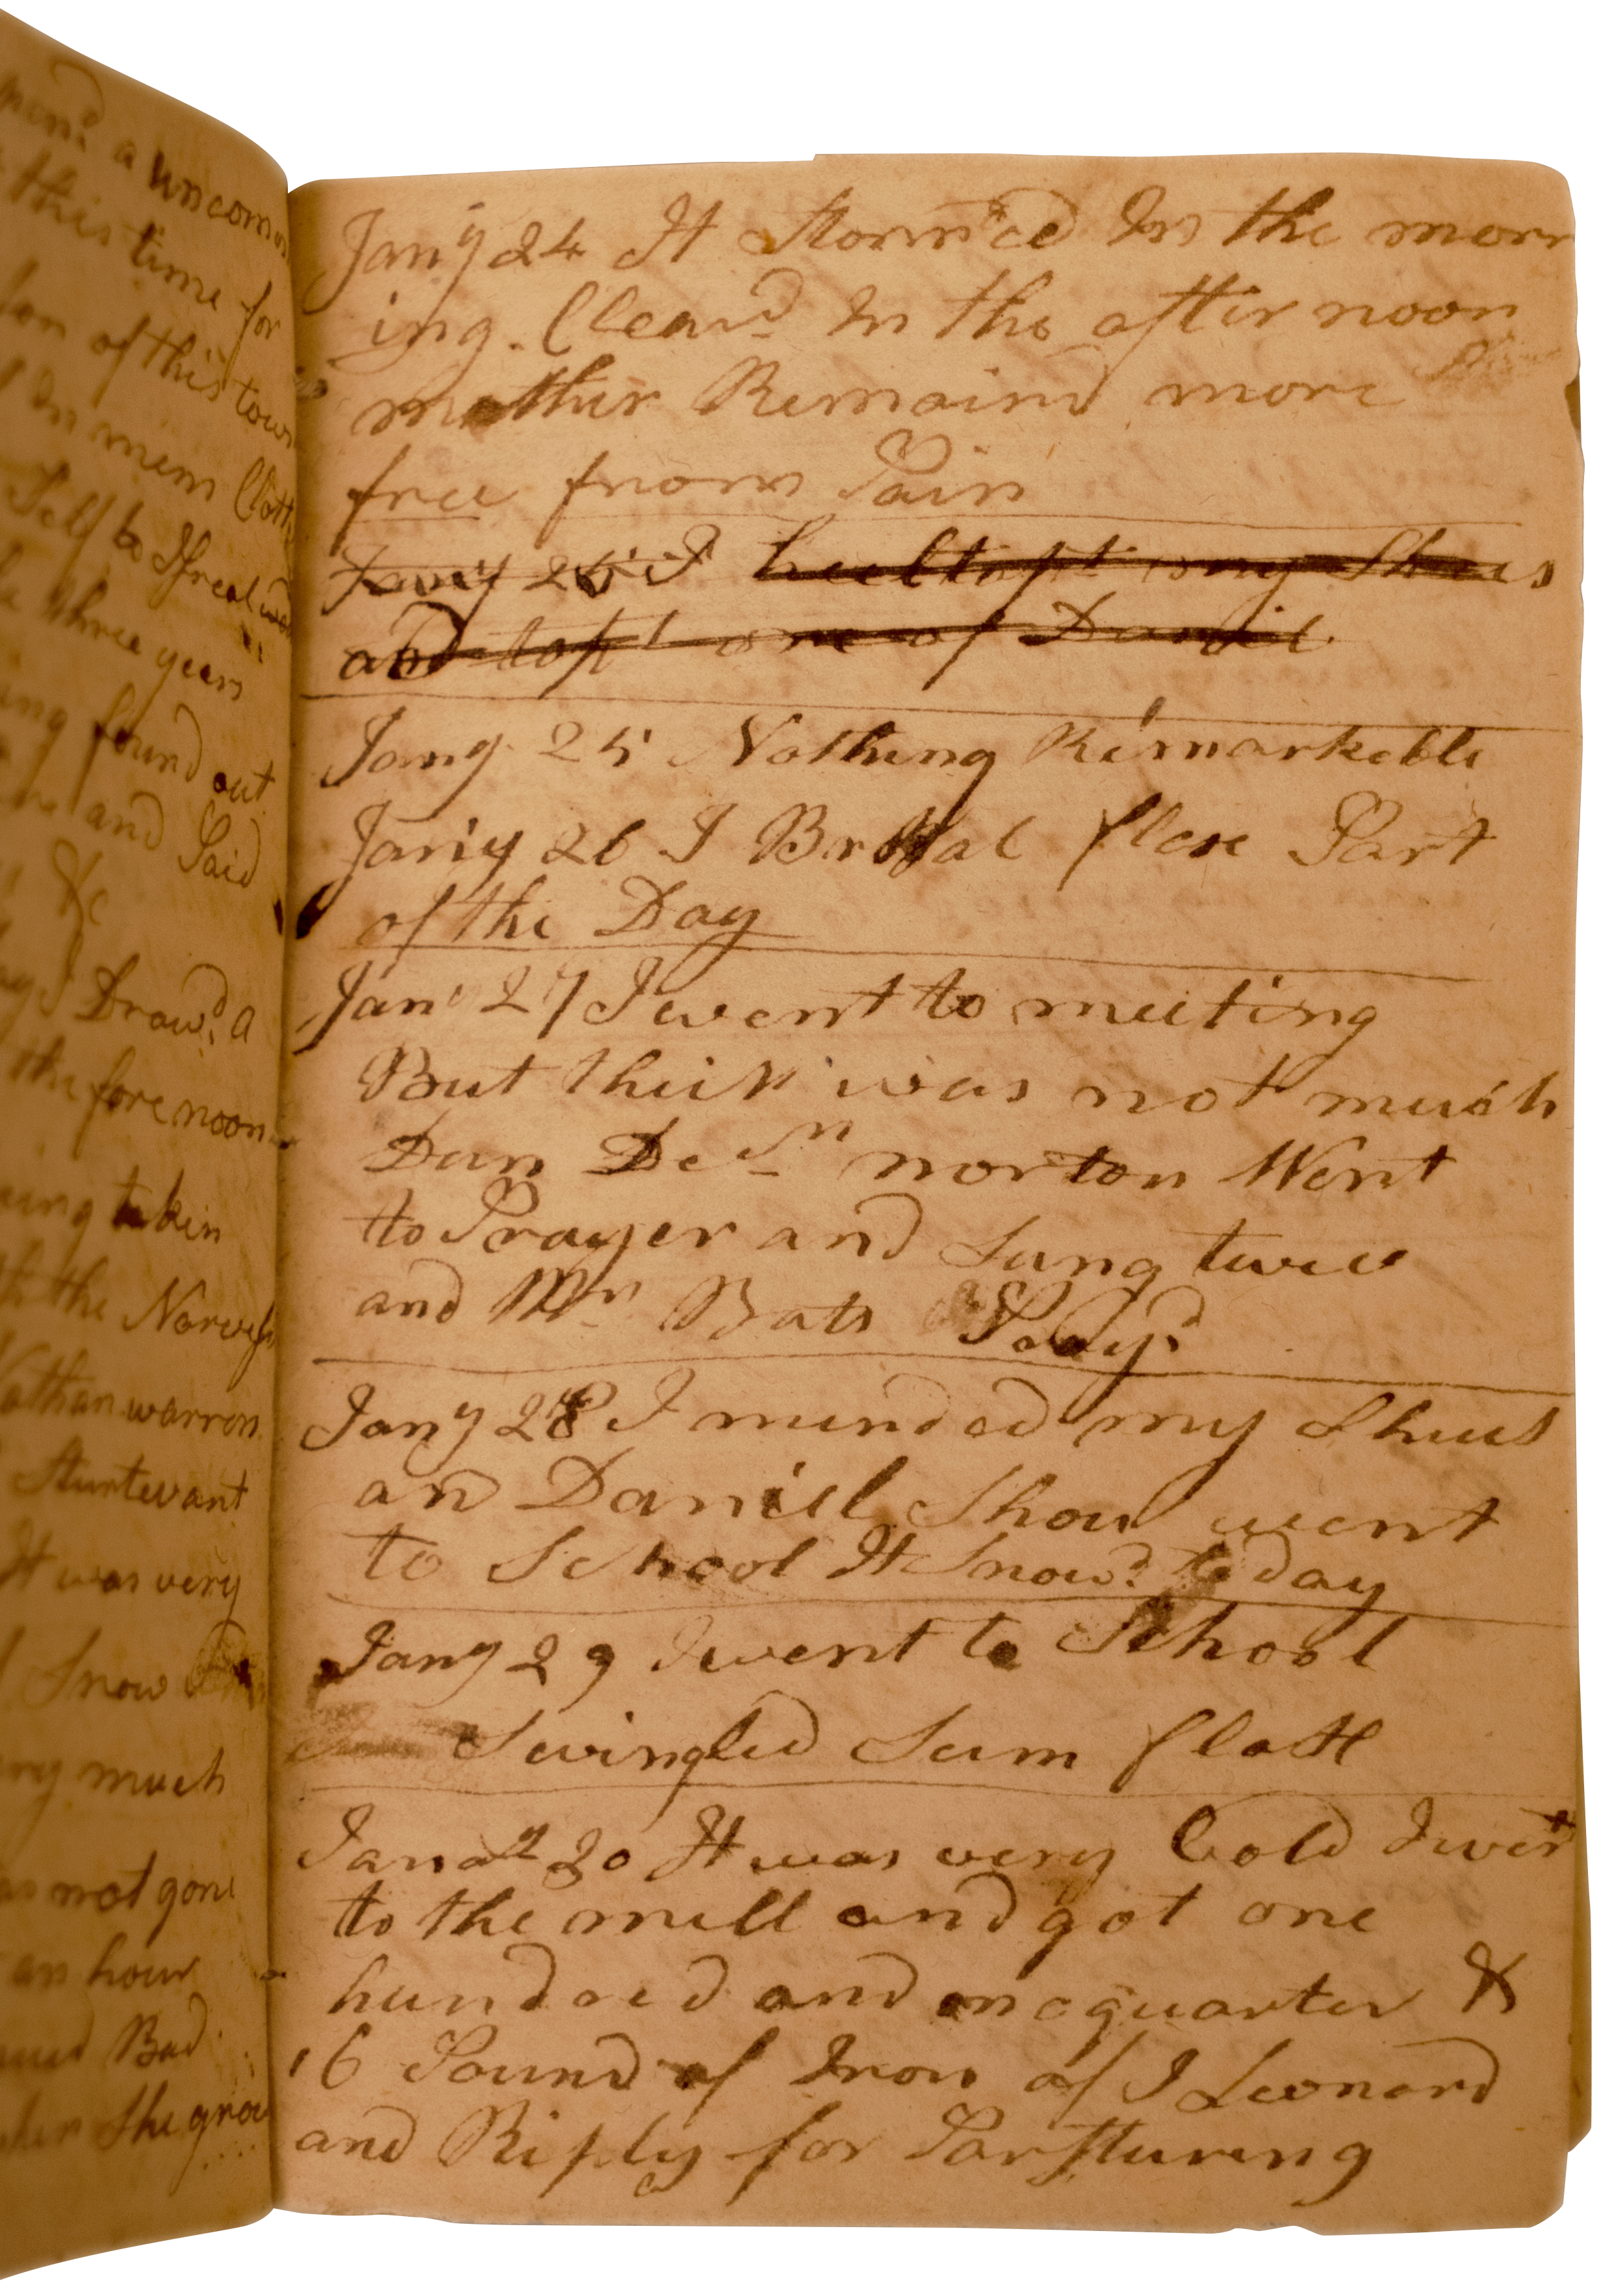 pend a uncom
this time for
son of this town
In mens Cloth
Self be
three years
ing found out
and Said
&c
I Draw.d a
the fore noon
ing takin
the
Nathan warron
Sturtevant
It was very
Snow
very much
not gone
an hour
Bad
the grou
Jany 24 It Storm'ed In the morn
ing. Clear.d In the aftirnoon
mother Remaind more
free from Pain
Jany 25 I heeltapt my Shues
and tapt one of Daniel
Jany 25 Nothing Remarkeble
Jany 26 I flax Part
of the Day
Jany 27 I went to meeting
But their was not much
Dun Den norton Went
to Prayer and Sung twice
and Mr Bats Pray.d
Jany 28 I mended my Shues
and Daniel Shaw went
to School It Snow.d to day
Jany 29 I went to School
Swingled Sum flax
Janay 30 It was very Cold I went
to the mill and got one
hundred and one quarter &
16 Pound of Iron of I Leonard
and Riply for Parsturing